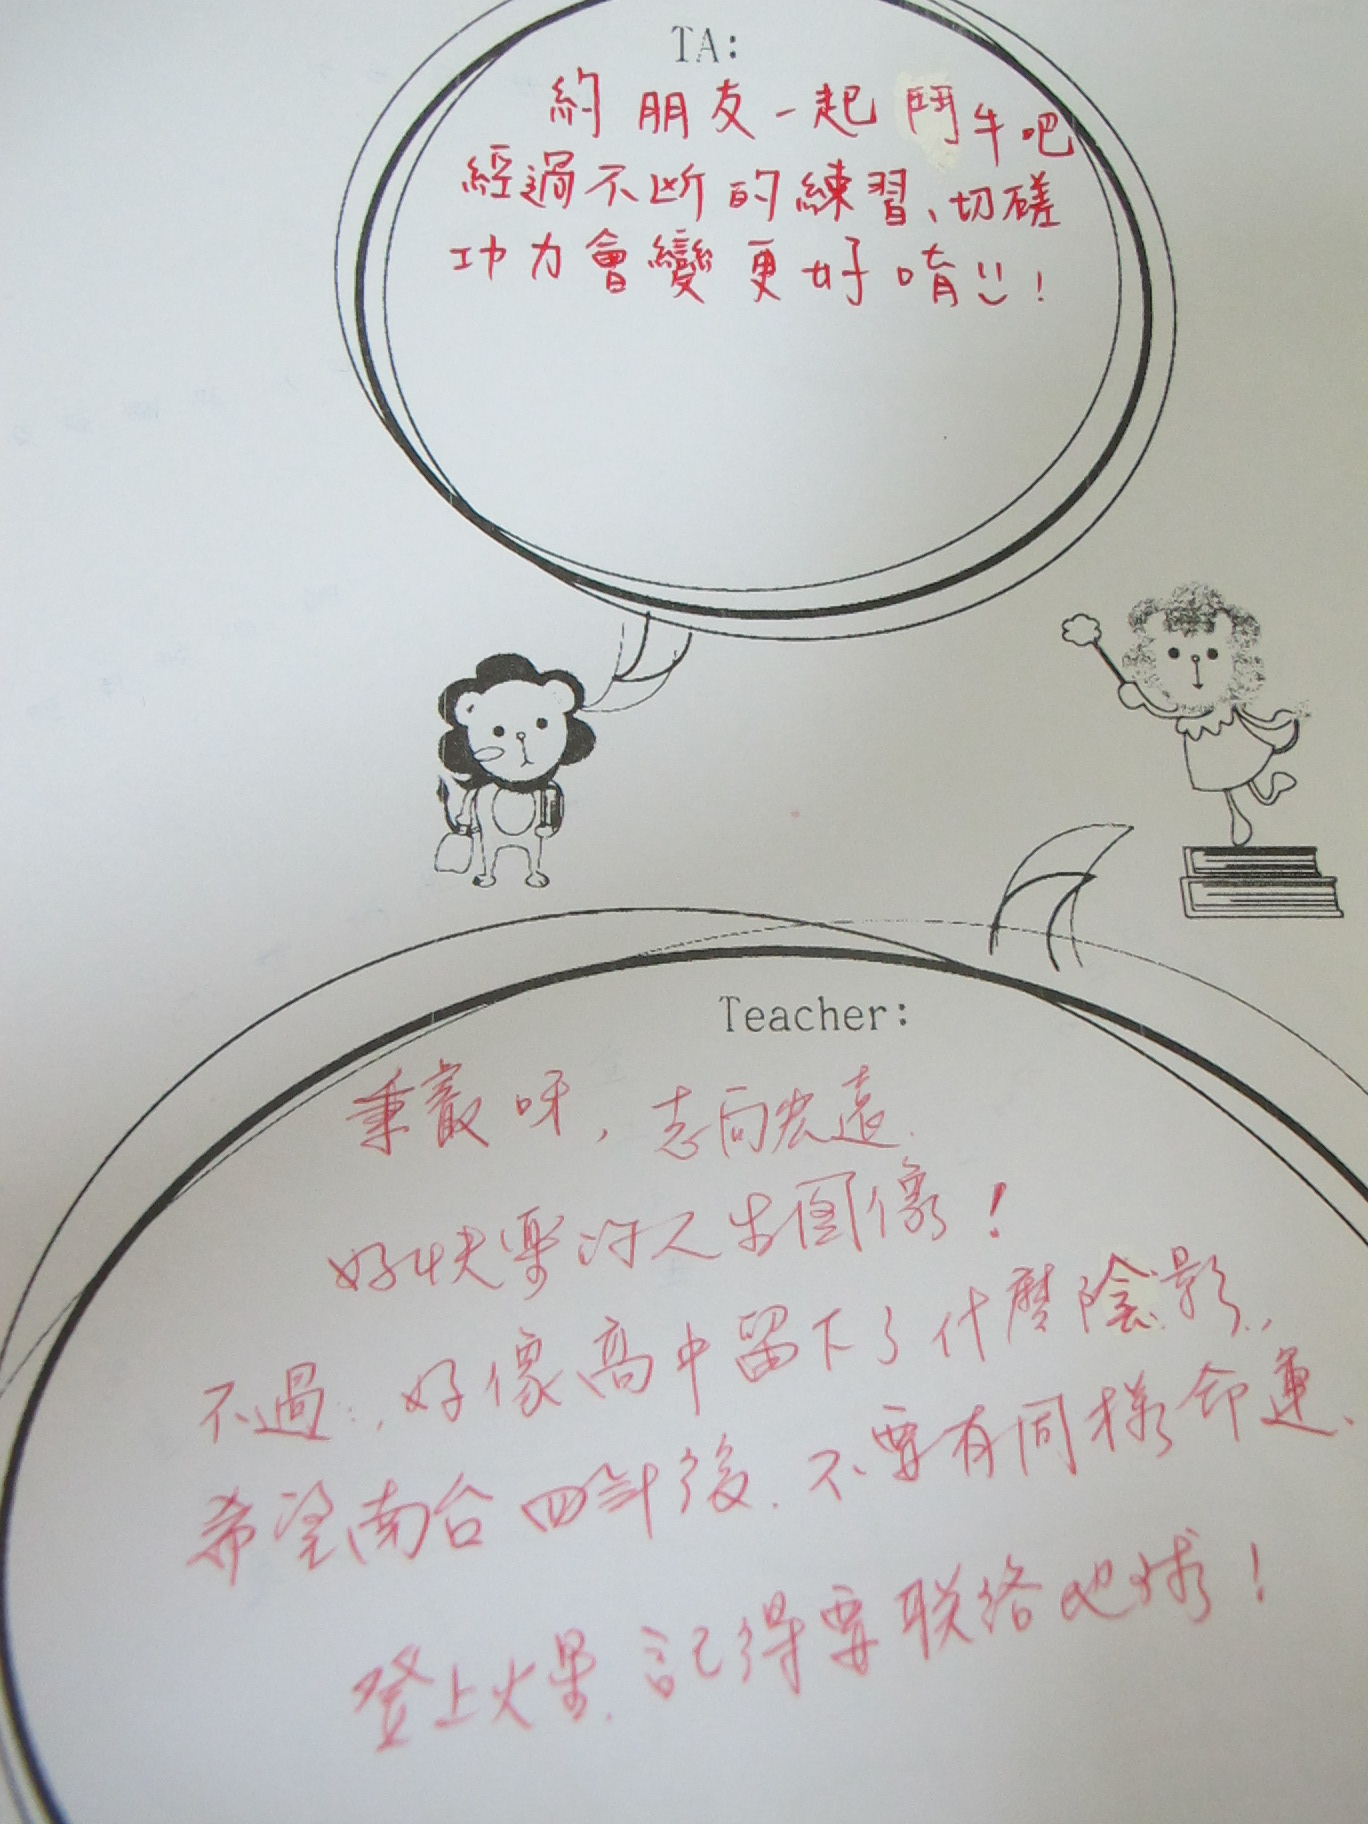 TA:
約朋友一起鬥牛吧
經過不斷的練習、切磋
功力會變更好唷!
Teacher:
秉叡呀,志向宏遠.
好快樂的人生圖像!
不過..,好像高中留下了什麼陰影.,
希望南台四年後.不要有同樣命運.
登上火星.記得要联络地球!